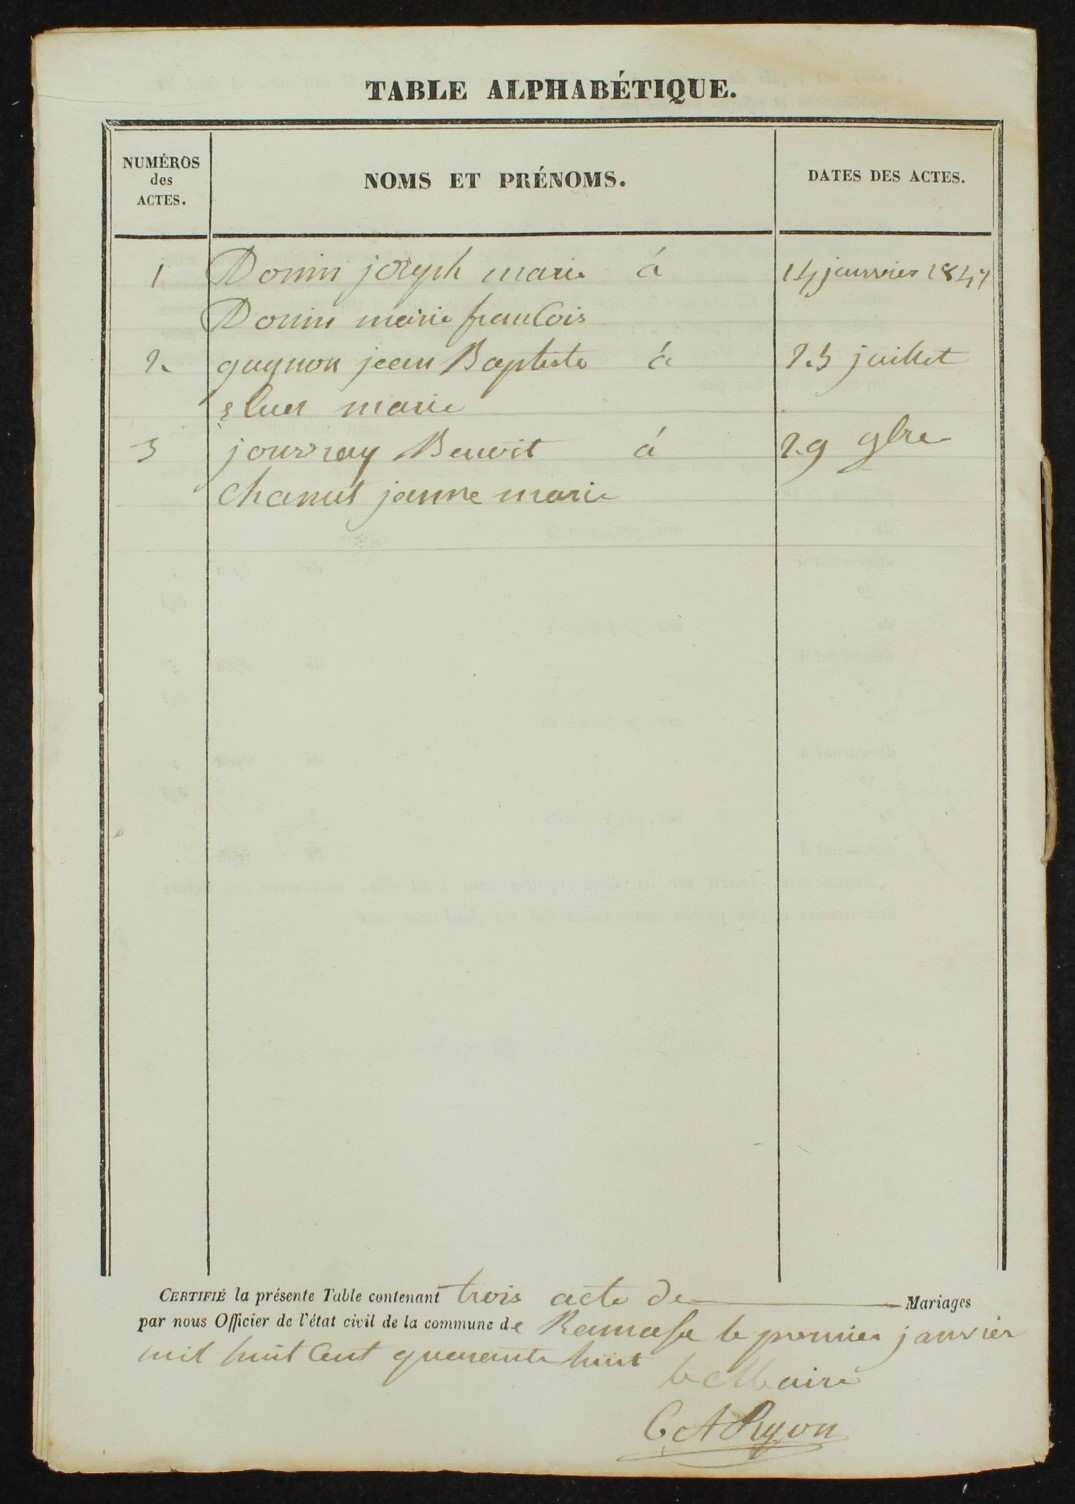 TABLE ALPHABÉTIQUE.
NUMÉROS
des
ACTES.
NOMS ET PRÉNOMS.
DATES DES ACTES.
1 Donin joseph marie á 14 janvier 1847
Donin marie francois
2 gagnon jean Baptiste á 25 juillet
marie
3 jouvray Benoit á 29 9bre
Chanut jeanne marie
CERTIFIÉ la présente Table contenant trois acte de Mariages
par nous Officier de l'état civil de la commune de Ramasse le premier janvier
mil huit cent quarante huit
le Maire